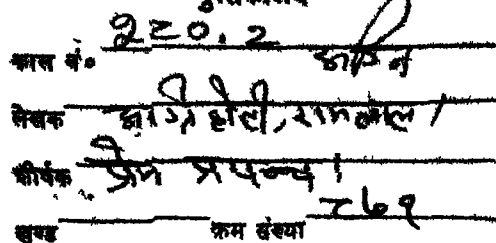 काल नं० २८०.२
लेखक अग्निहोत्री, रामलाल ।
शीर्षक प्रेम प्रपञ्च ।
खण्ड क्रम संख्या ८७१